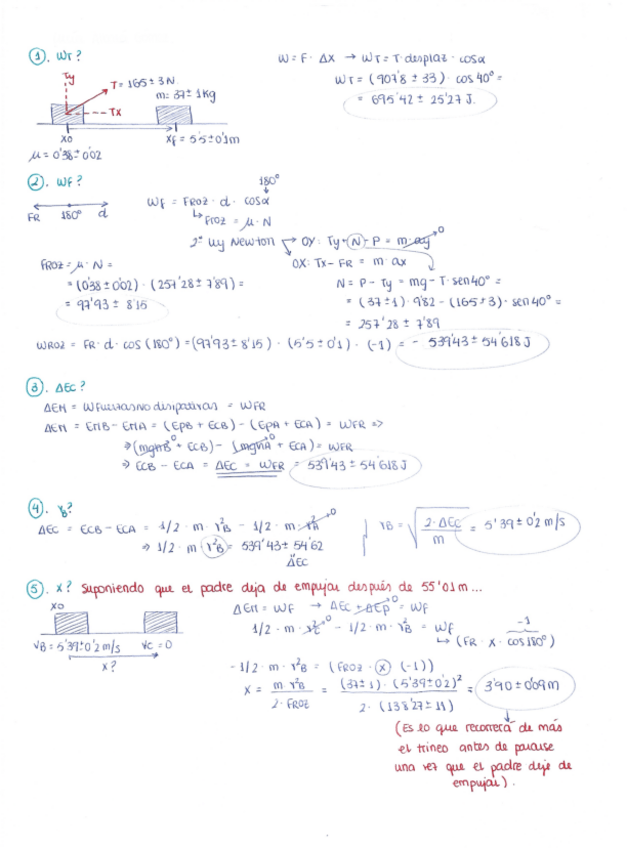 1. WT?
W = F · ΔX → WT = T · desplaz · cosα
WT = (907'8 ± 33) · cos 40° =
= 695'42 ± 25'27 J.
Ty
T = 165 ± 3 N
m: 37 ± 1 kg
Tx
x0
xf = 5'5 ± 0'1m
μ = 0'38 ± 0'02
2. WF?
180°
FR 180° d
WF = FROZ · d · cosα
↳ FROZ = μ · N
2ª Ley Newton → OY: Ty + N - P = m · ay 0
OX: Tx - FR = m · ax
FROZ = μ · N =
= (0'38 ± 0'02) · (257'28 ± 7'89) =
= 97'93 ± 8'15
N = P - Ty = mg - T · sen 40° =
= (37 ± 1) · 9'82 - (165 ± 3) · sen 40° =
= 257'28 ± 7'89
WROZ = FR · d · cos (180°) = (97'93 ± 8'15) · (5'5 ± 0'1) · (-1) = - 539'43 ± 54'618 J
3. ΔEC?
ΔEM = WFuerzas No disipativas = WFR
ΔEM = EMB - EMA = (EPB + ECB) - (EPA + ECA) = WFR =>
=> (mghB 0 + ECB) - (mghA 0 + ECA) = WFR
=> ECB - ECA = ΔEC = WFR = 539'43 ± 54'618 J
4. VB?
ΔEC = ECB - ECA = 1/2 · m · V²B - 1/2 · m · V²A 0
=> 1/2 · m V²B = 539'43 ± 54'62
ΔEC
VB = √ 2 · ΔEC / m = 5'39 ± 0'2 m/s
5. X? Suponiendo que el padre deja de empujar después de 55'01 m...
x0
VB = 5'39 ± 0'2 m/s VC = 0
x?
ΔEM = WF → ΔEC + ΔEP 0 = WF
1/2 · m · V²C 0 - 1/2 · m · V²B = WF -1
↳ (FR · X · cos 180°)
-1/2 · m · V²B = (FROZ · X · (-1))
X = m V²B / 2 · FROZ = (37 ± 1) · (5'39 ± 0'2)² / 2 · (138'27 ± 11) = 3'90 ± 0'09 m
(Es lo que recorrerá de más
el trineo antes de pararse
una vez que el padre deje de
empujar).